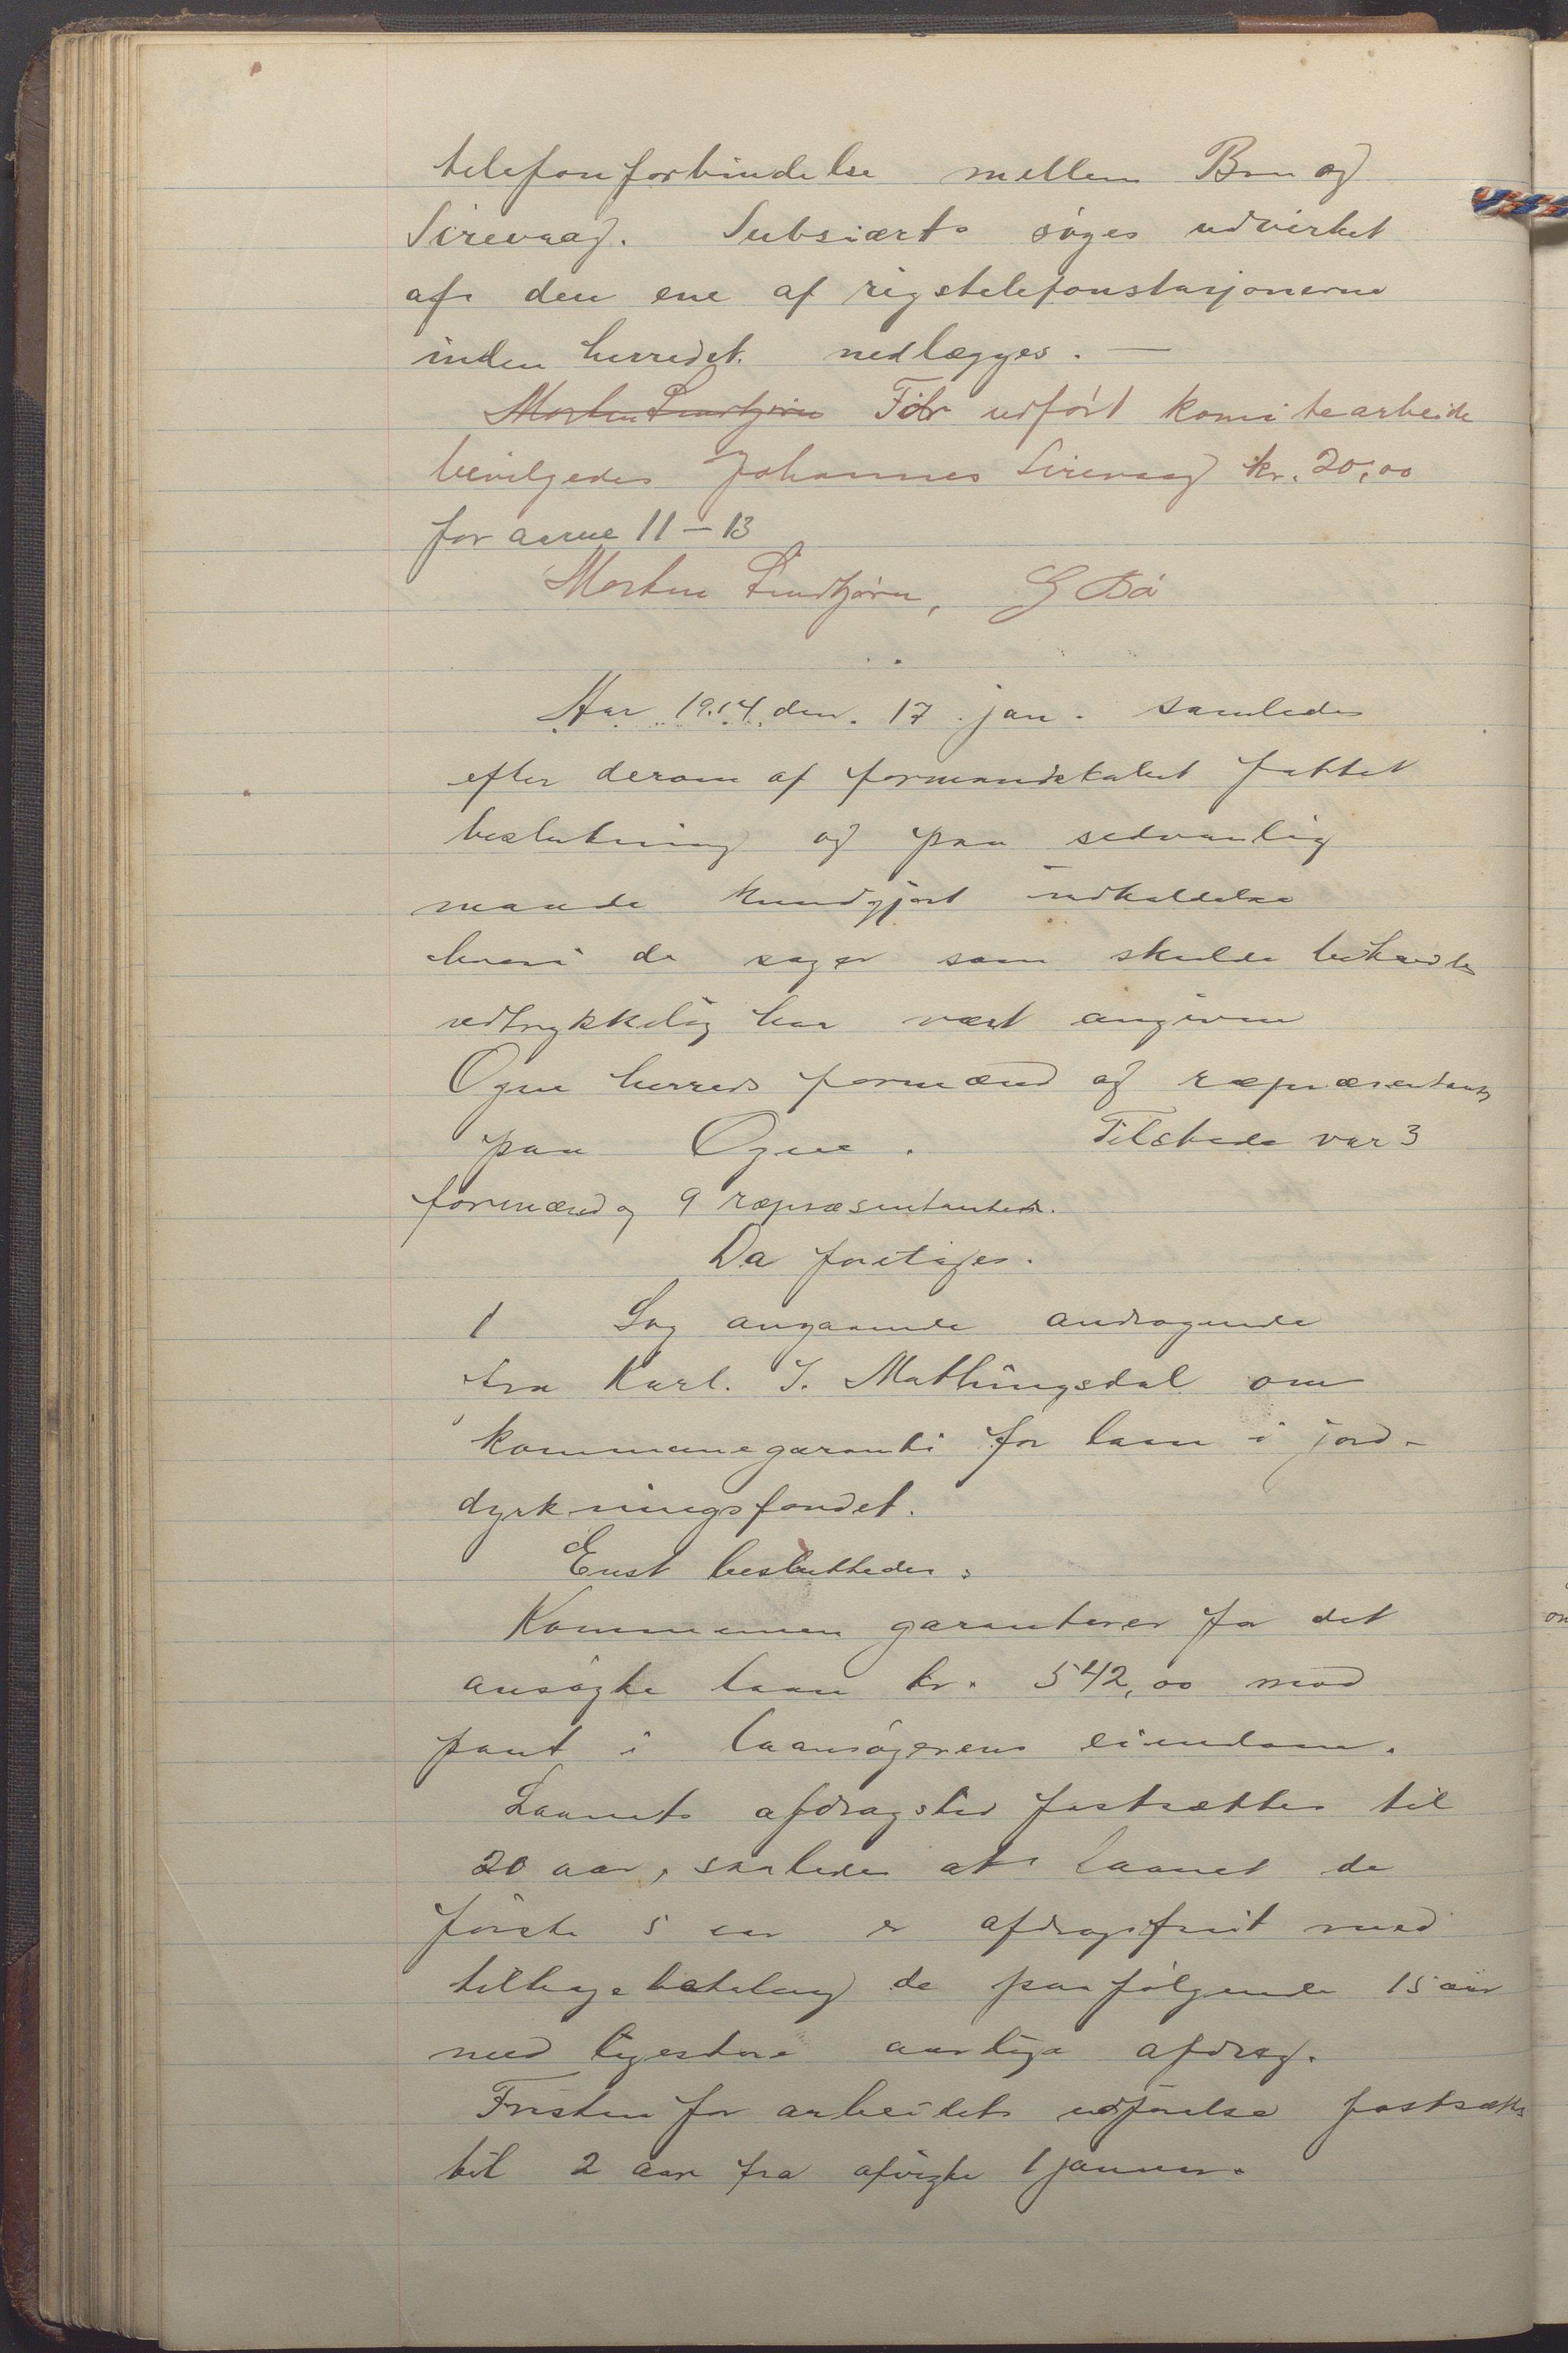 telefonforbindelse mellem Bru og
Sirevaag. Subsiært søges udvirket
at den ene af rigstelefonstasjonerne
inden herredet nedlægges. —
Morten Lindtjørn For udført komitearbeide
bevilgedes Johannes Sirevaag kr. 20,00
for aarne 11 – 13
Morten Lindtjørn, G Bø
Aar 1914 den 17 jan. samledes
efter derom af formandskabet fattet
beslutning og paa sedvanlig
maade kundgjort indkaldelse
hvori de sager som skulde behandles
udtrykkelig har vært angivne
Ogne herreds formænd og ræpræsentanter
paa Ogne. Tilstede var 3
formænd og 9 ræpræsentanter.
Da foretages.
1 Sag angaaende andragende
fra Karl. I. Mathingsdal om
kommunegaranti for laan i jord-
dyrkningsfondet.
Enst besluttedes:
Kommunen garanterer for det
ansøgte laan kr. 542,00 mod
pant i laansøgerens eiendom.
Laanets afdragstid fastsættes til
20 aar, saaledes at laanet de
første 5 aar er afdragsfrit med
tilbagebetaling de paafølgende 15 aar
med ligestore aarlige afdrag.
Fristen for arbeidets udførelse fastsættes
til 2 aar fra afvigte 1 januar.